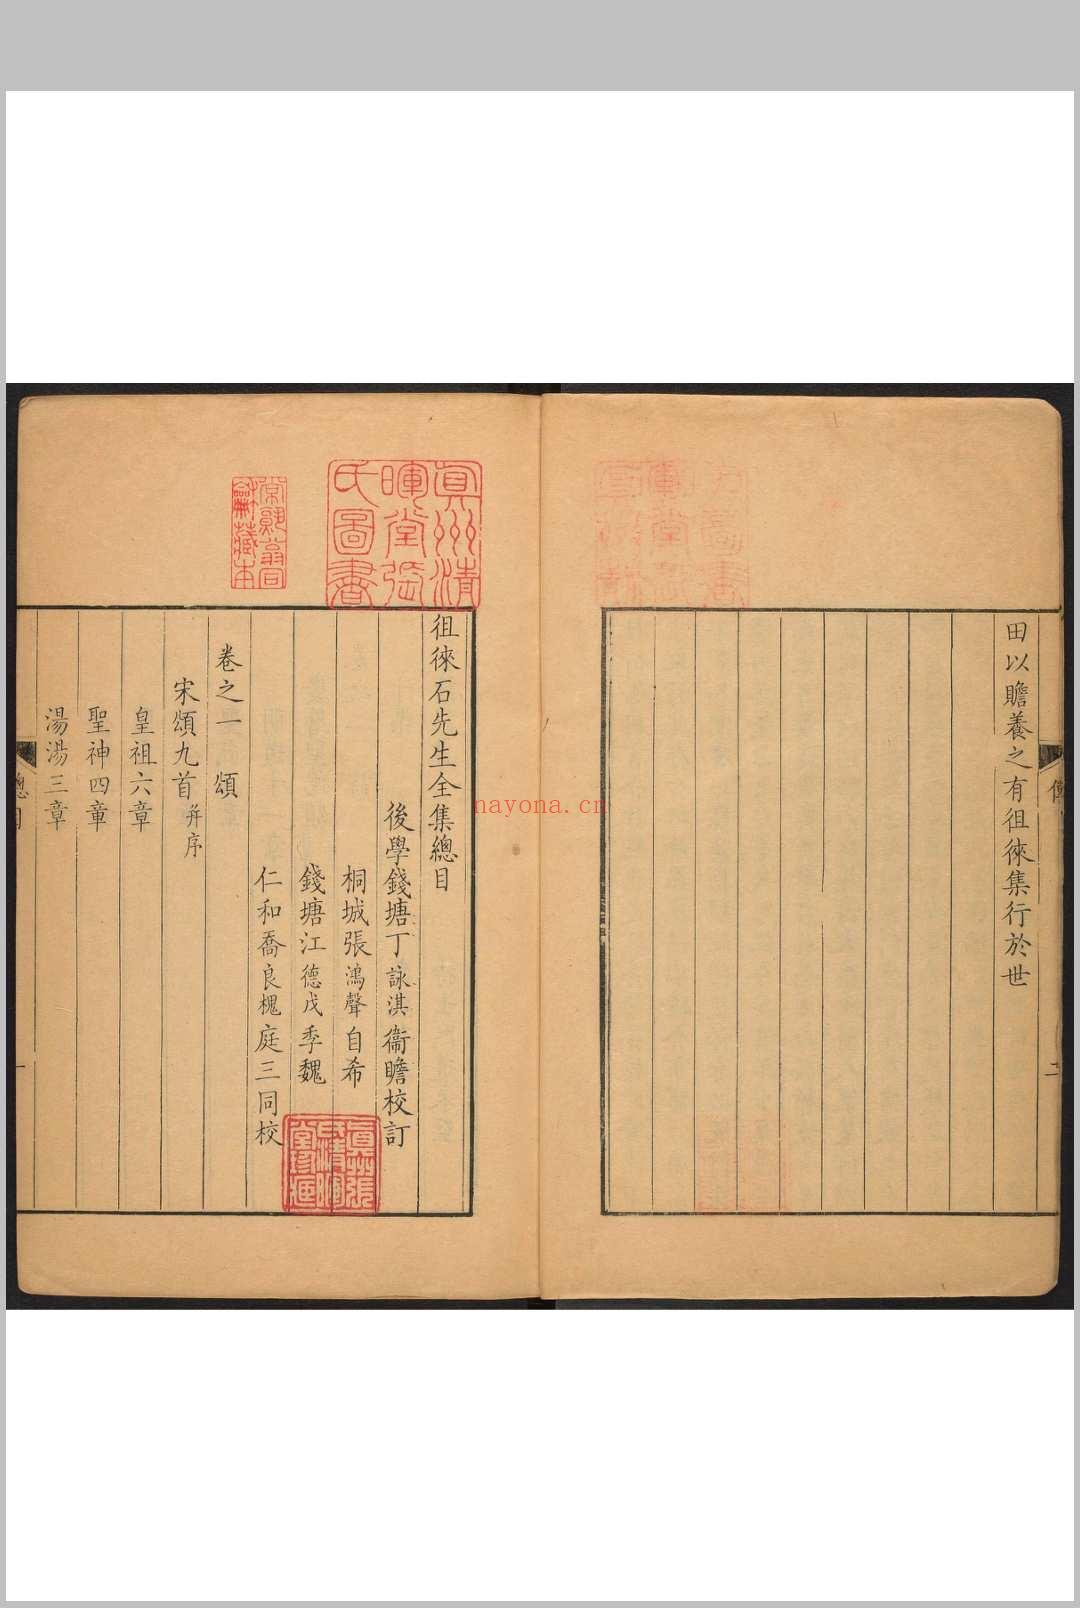 田以贍養之有徂徠集行於世
傳
二
真州清
暉堂張
氏圖書
徂徠石先生全集總目
後學錢塘丁詠淇衞瞻校訂
桐城張鴻聲自希
錢塘江德戊季魏
仁和喬良槐庭三同校
卷之一　頌
宋頌九首并序
皇祖六章
聖神四章
湯湯三章
總目
一
nayona.cn